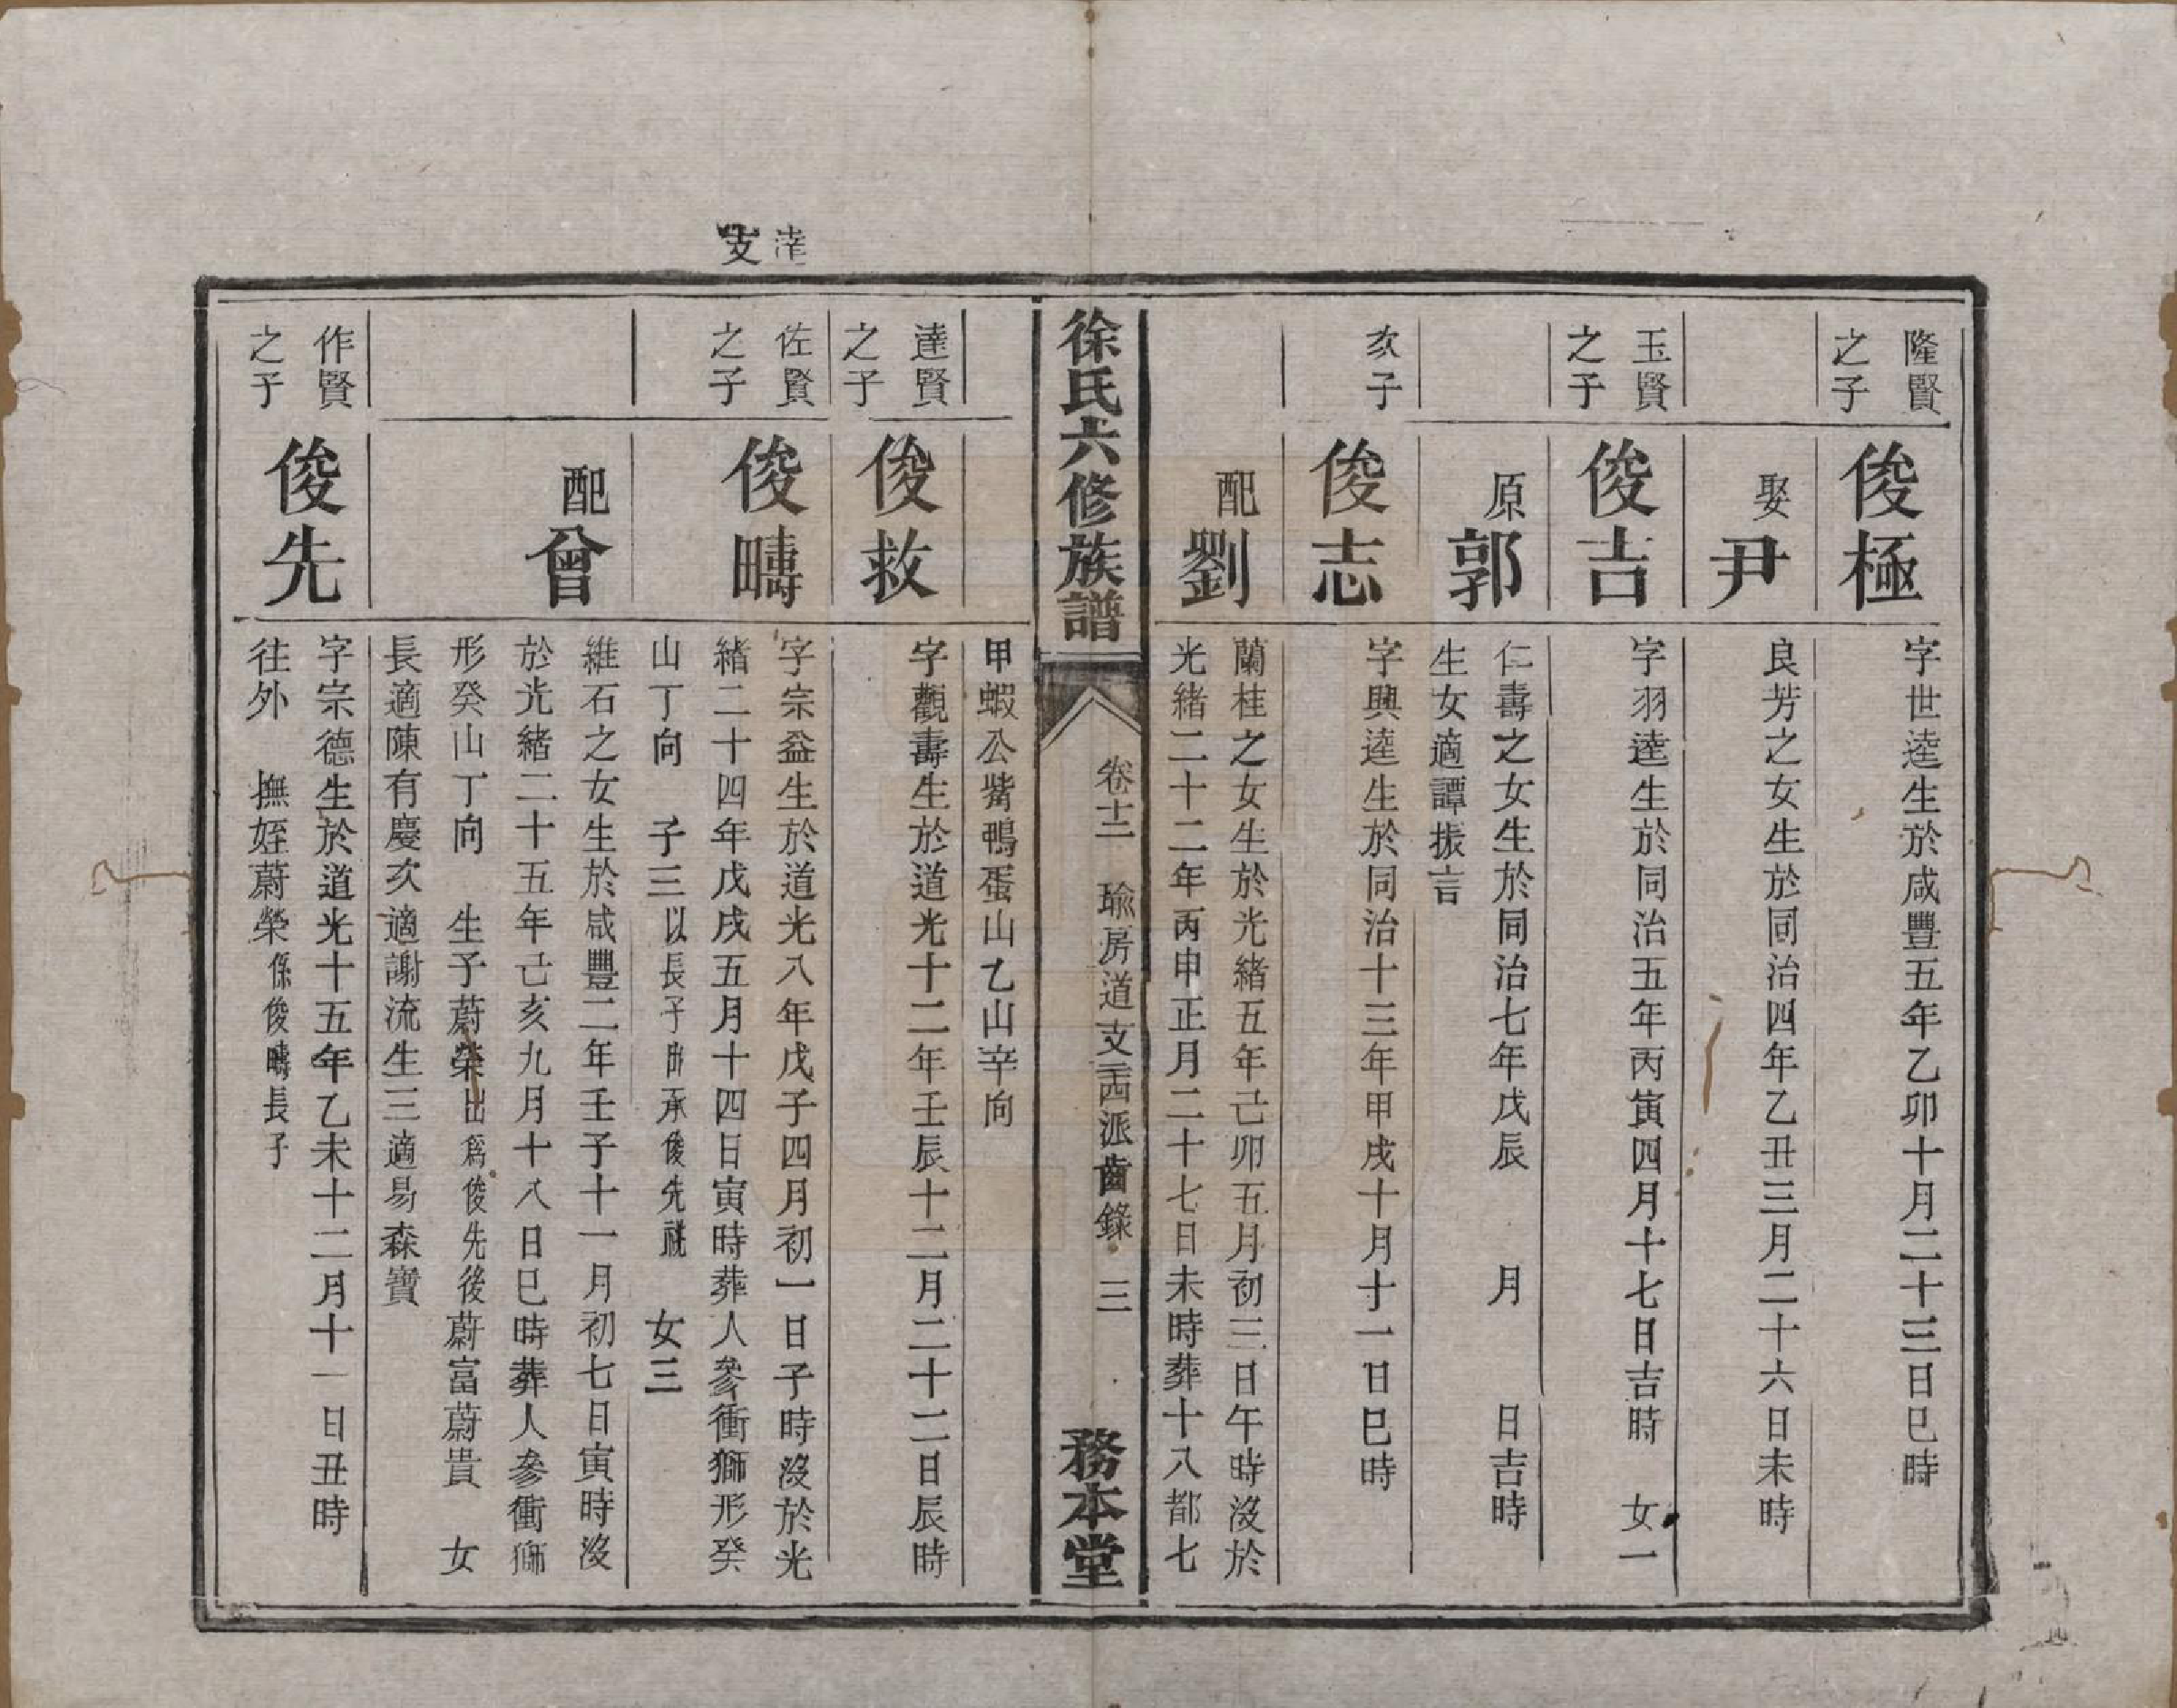 隆賢
之子
俊極
字世逵生於咸豐五年乙卯十月二十三日巳時
娶尹
良芳之女生於同治四年乙丑三月二十六日未時
玉賢
之子
俊吉
字羽逵生於同治五年丙寅四月十七日吉時 女一
原郭
仁壽之女生於同治七年戊辰 月 日吉時
生女適譚振言
次子
俊志
字興逵生於同治十三年甲戌十月十一日巳時
配劉
蘭桂之女生於光緒五年己卯五月初三日午時沒於
光緒二十二年丙申正月二十七日未時葬十八都七
徐氏六修族譜
卷十二 瑜房道支 西派齒錄 三
務本堂
甲蝦公觜鴨蛋山乙山辛向
達賢
之子
俊救
字觀壽生於道光十二年壬辰十二月二十二日辰時
支
佐賢
之子
俊疇
字宗益生於道光八年戊子四月初一日子時沒於光
緒二十四年戊戌五月十四日寅時葬人參衝獅形癸
山丁向 子三以長子出承俊先祧 女三
配曾
維石之女生於咸豐二年壬子十一月初七日寅時沒
於光緒二十五年己亥九月十八日巳時葬人參衝獅
形癸山丁向 生子蔚榮出爲俊先後蔚富蔚貴 女
長適陳有慶次適謝流生三適易森寶
作賢
之子
俊先
字宗德生於道光十五年乙未十二月十一日丑時
往外 撫姪蔚榮係俊疇長子